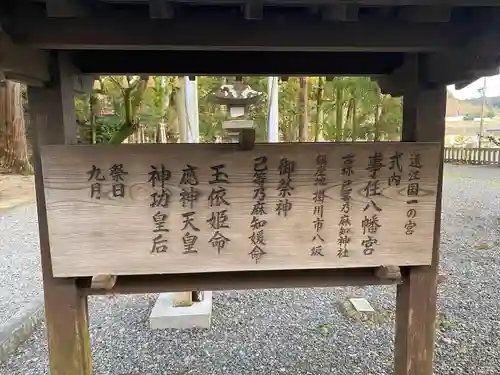 遠江国一の宮
式内
事任八幡宮
古称 己等乃麻知神社
鎮座地 掛川市八坂
御祭神
己等乃麻知媛命
玉依姫命
応神天皇
神功皇后
祭日
九月